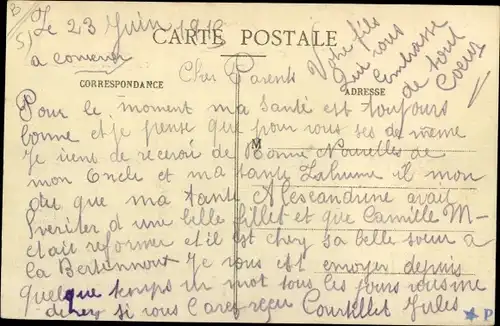 Le 23 Juin 1915
a conserver
CARTE POSTALE
CORRESPONDANCE
ADRESSE
Votre fils
qui vous
embrasse
de tout
Coeur
Cher Parents
Pour le moment ma santé est toujours
bonne et je pense que pour vous ses de meme
Je viens de recevoir de Bonne Nouvelles de
mon Oncle et ma tante il mon
du que ma tante Alexandrine avait
d une belle fillet et que Camille M-
etait reformer et il est chez sa belle soeur a
la Je vous est envoyer depuis
quelque temps un mot tous les jours
si vous l'avez reçu Jules
M
P